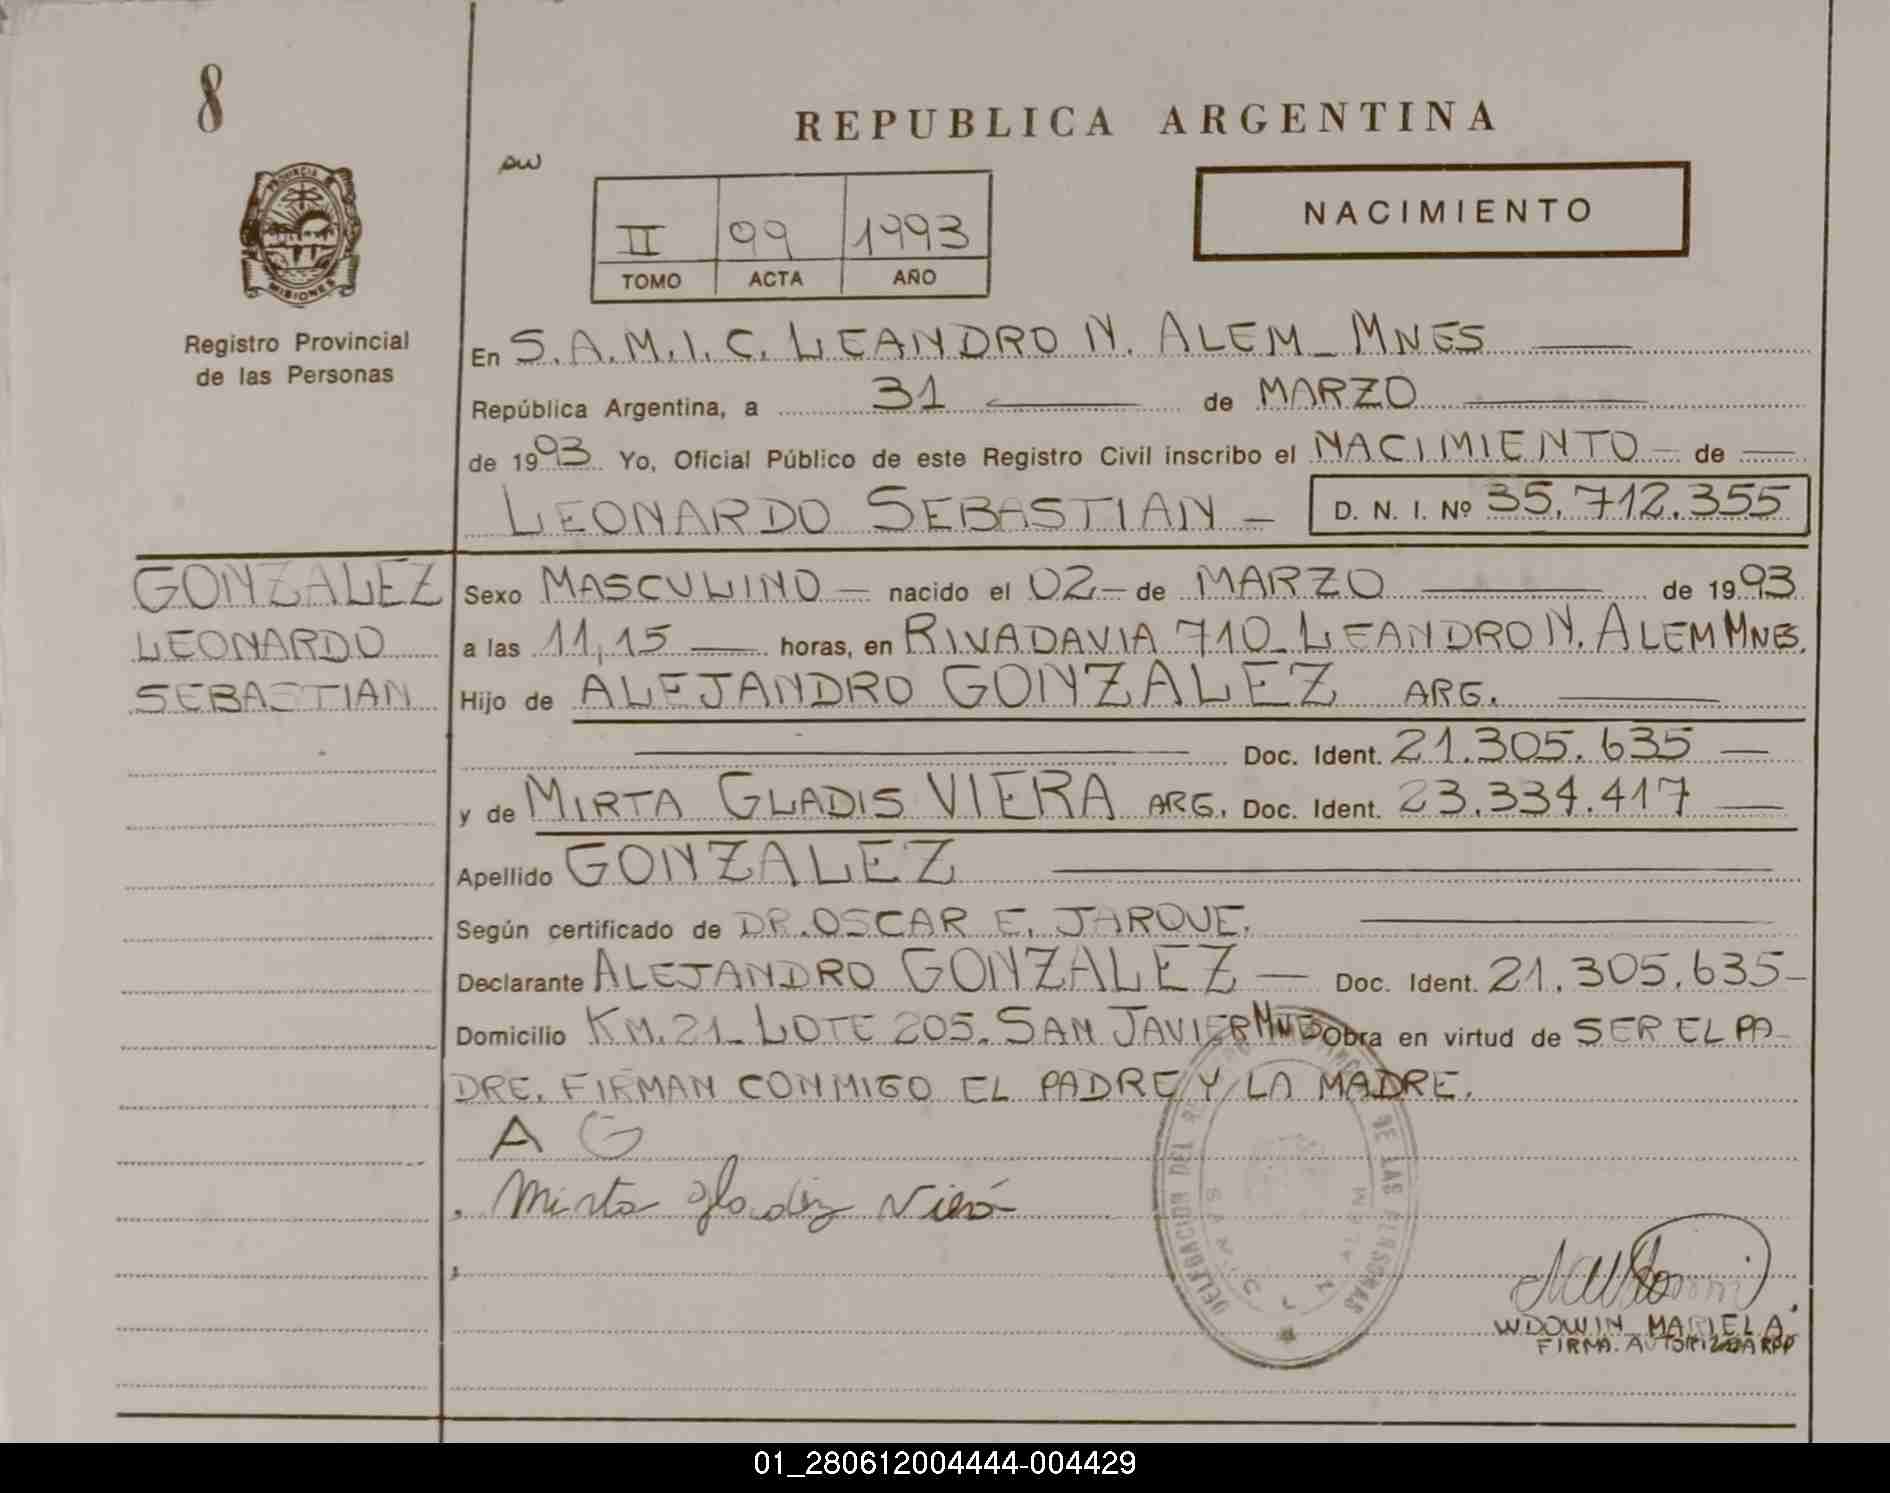 8
REPUBLICA ARGENTINA
NACIMIENTO
II 99 1993
TOMO ACTA AÑO
PROVINCIA
MISIONES
Registro Provincial
de las Personas
En S.A.M.I.C. LEANDRO N. ALEM_MNES
República Argentina, a 31 de MARZO
de 1993 Yo, Oficial Público de este Registro Civil inscribo el NACIMIENTO - de
LEONARDO SEBASTIAN - D. N. I. Nº 35.712.355
GONZALEZ
LEONARDO
SEBASTIAN
Sexo MASCULINO - nacido el 02 - de MARZO de 1993
a las 11,15 horas, en RIVADAVIA 710_LEANDRO N. ALEM MNES.
Hijo de ALEJANDRO GONZALEZ ARG.
Doc. Ident. 21.305.635
y de MIRTA GLADIS VIERA ARG. Doc. Ident. 23.334.417
Apellido GONZALEZ
Según certificado de DR. OSCAR E. JARQUE.
Declarante ALEJANDRO GONZALEZ - Doc. Ident. 21.305.635-
Domicilio KM.21_LOTE 205. SAN JAVIER MNES Obra en virtud de SER EL PA-
DRE. FIRMAN CONMIGO EL PADRE Y LA MADRE.
A G
Mirta Gladiz Viera
DELEGACION DEL DE LAS PERSONAS
WDOWIN MARIELA
FIRMA AUTORIZADA RPP
01_280612004444-004429